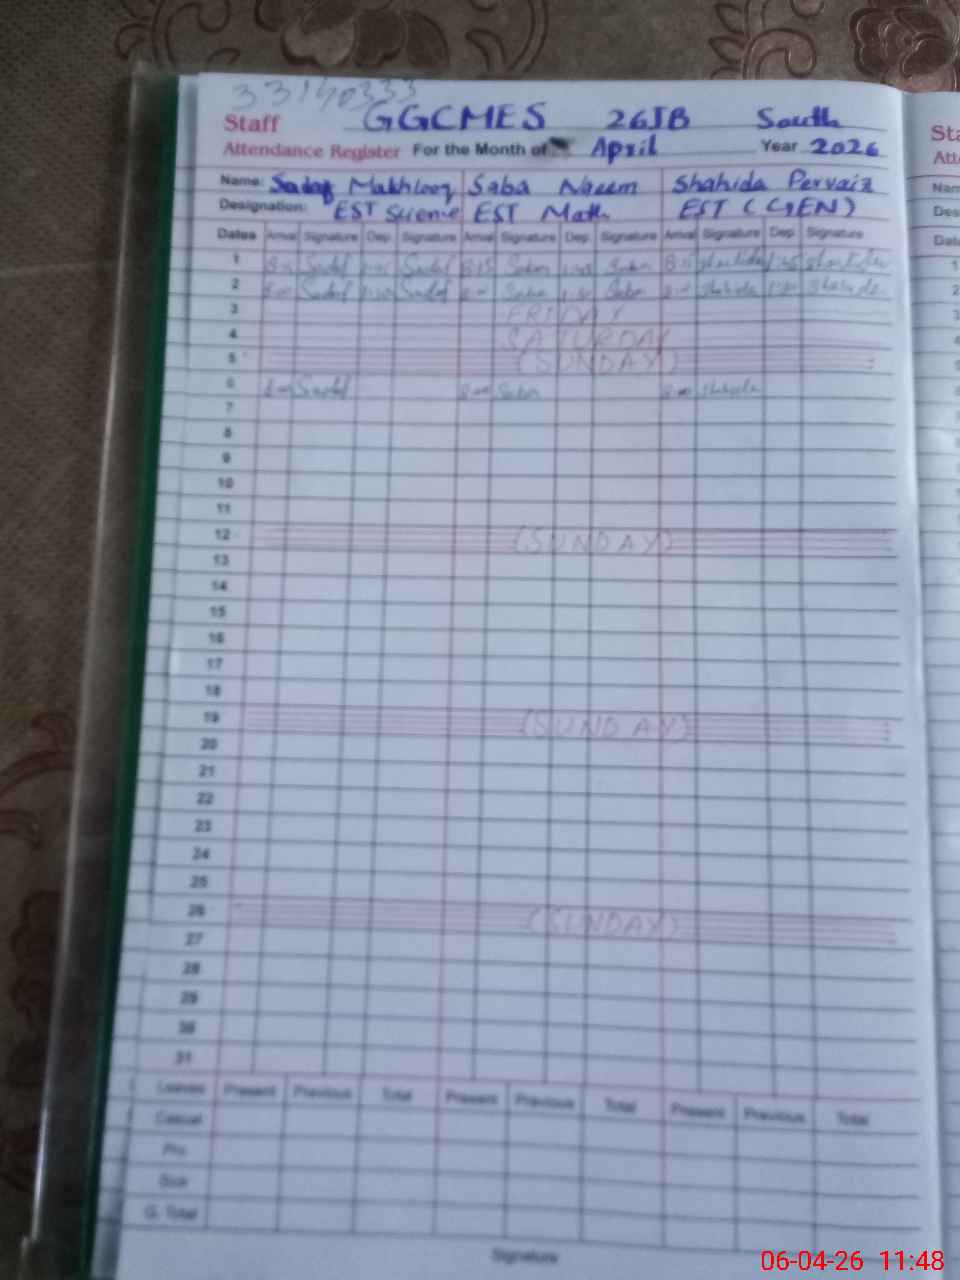 33140333
Staff GGCMES 26JB South
Attendance Register For the Month of April Year 2026
Name: Sadaf Makhlooq Saba Naeem Shahida Pervaiz
Designation: EST Science EST Math EST (GEN)
Dates Arrival Signature Dep. Signature Arrival Signature Dep. Signature Arrival Signature Dep. Signature
1 8:15 Sadaf Sadaf 8:15 Saba Saba 8:15 Shahida Shahida
2 Sadaf Sadaf Saba Saba Shahida Shahida
3 FRIDAY
4 SATURDAY
5 (SUNDAY)
6 8:00 Sadaf 8:00 Saba 8:00 Shahida
7
8
9
10
11
12 (SUNDAY)
13
14
15
16
17
18
19 (SUNDAY)
20
21
22
23
24
25
26 (SUNDAY)
27
28
29
30
31
Leaves Present Previous Total Present Previous Total Present Previous Total
Casual
Prv.
Sick
G. Total
Signature
Sta
Att
Nam
Des
Dat
1
2
06-04-26 11:48